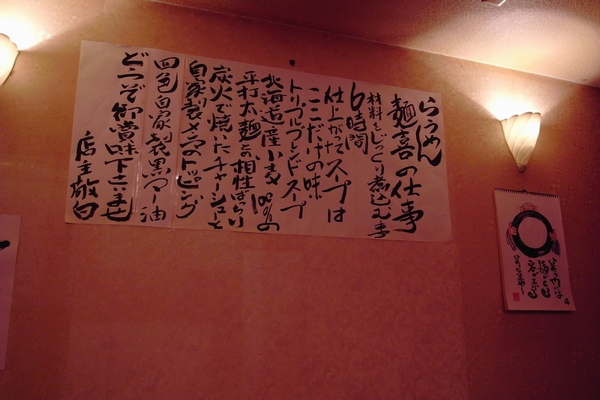 らぅめん
麺喜の仕事
材料をじっくり煮込む事
6時間
仕上がたスプは
ここだけの味
トリプルブレンドスープ
北海道産小麦100%の
平打太麺との相性ばっちり
炭火で焼いたチャーシューと
自家製メンマのトッピング
四色自家製黒マー油
どうぞ御賞味下さいませ
店主敬白